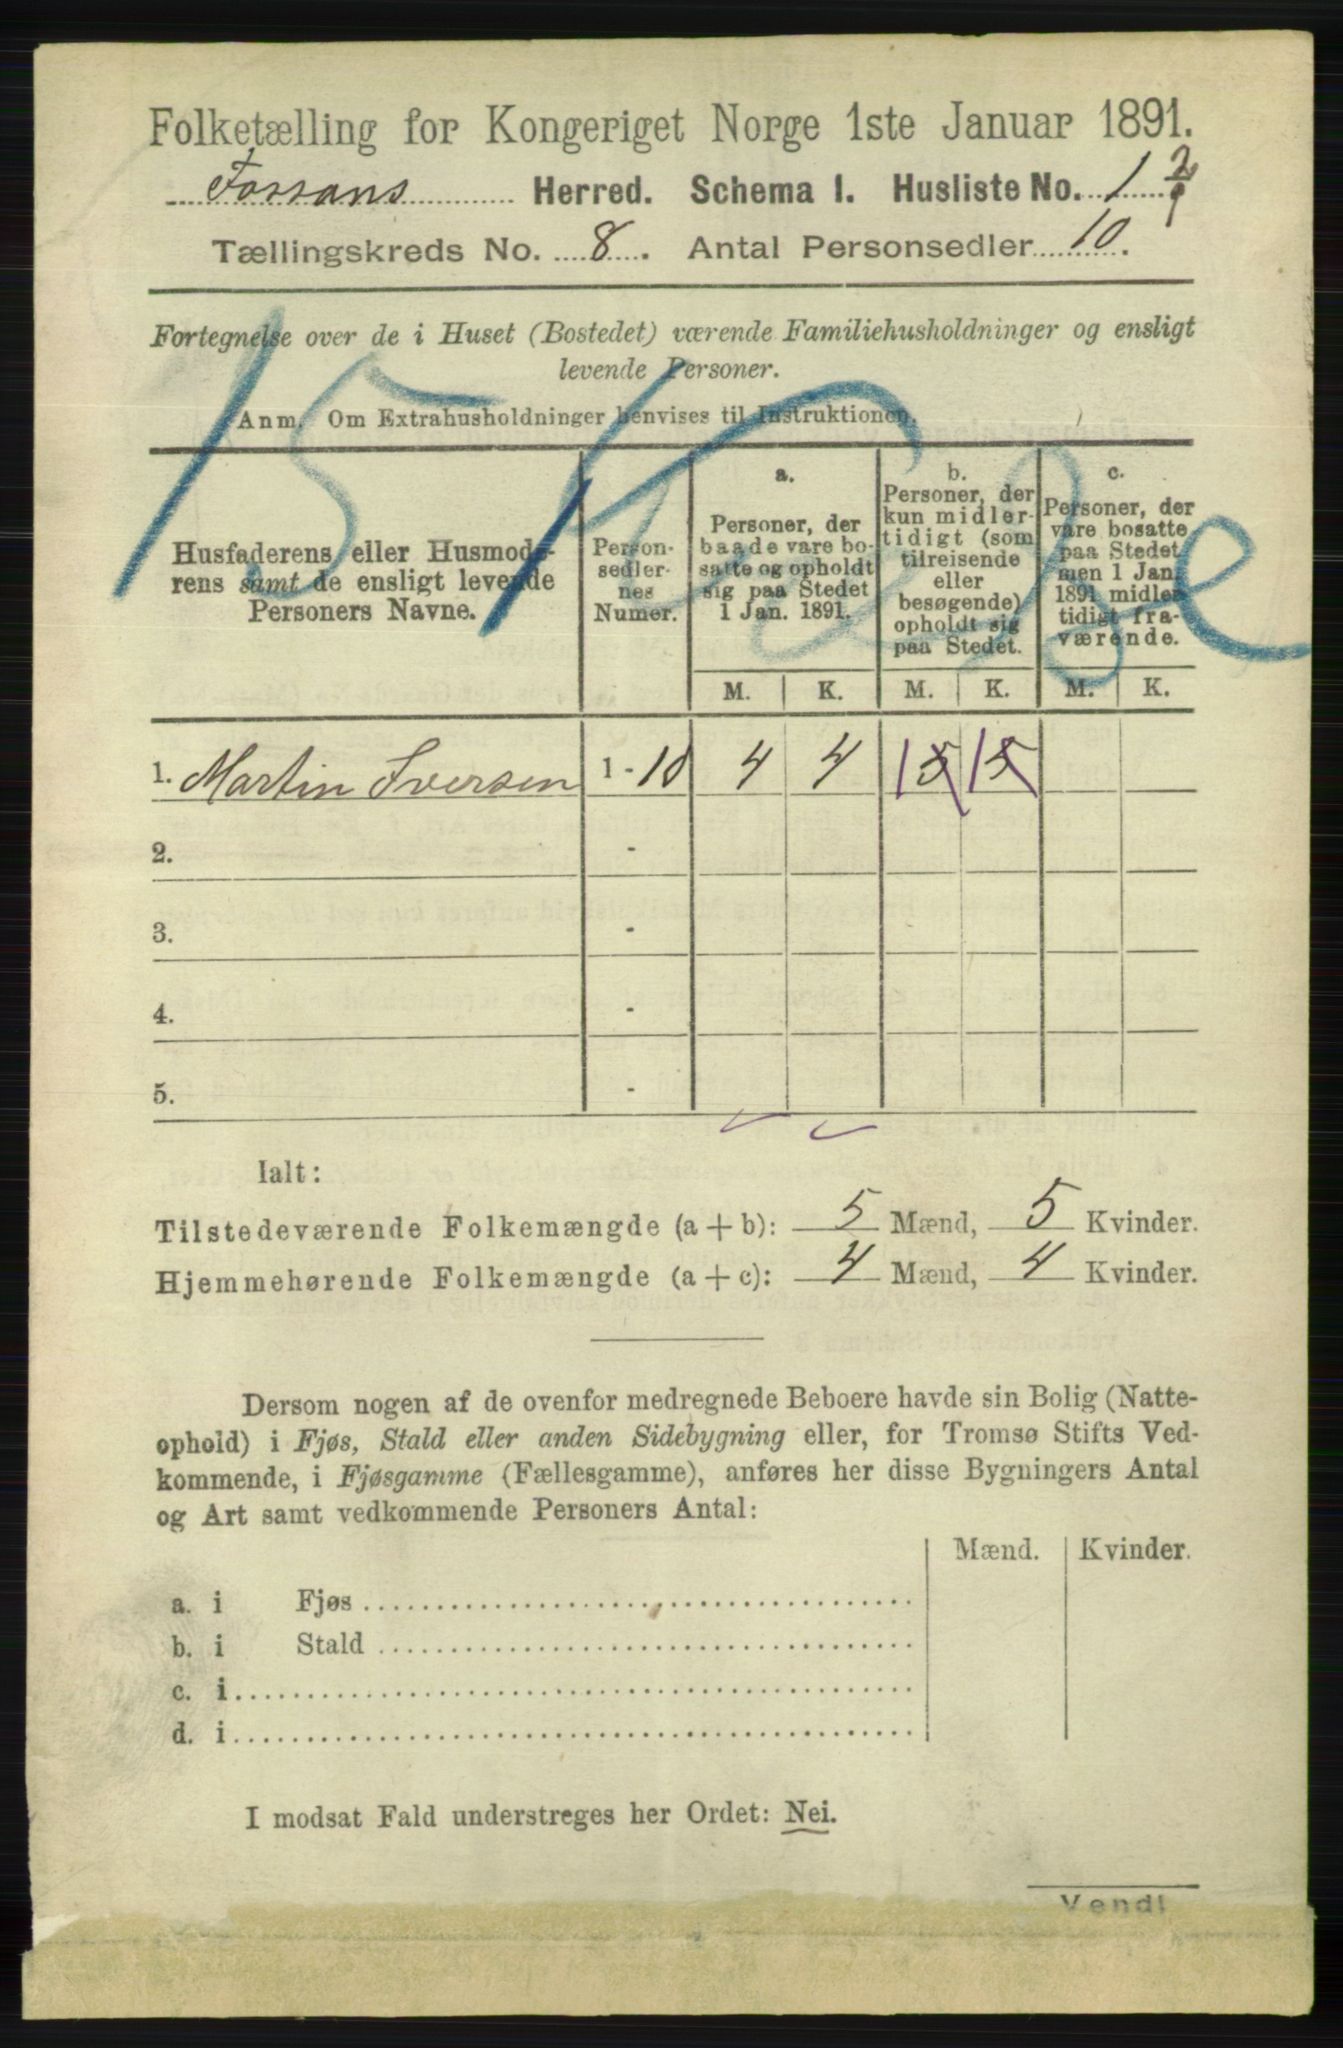 Folketælling for Kongeriget Norge 1ste Januar 1891.
Fossans Herred. Schema 1. Husliste No. 1 2/1
Tællingskreds No. 8. Antal Personsedler 10.
Fortegnelse over de i Huset (Bostedet) værende Familiehusholdninger og ensligt
levende Personer.
Anm. Om Extrahusholdninger henvises til Instruktionen.
15
Husfaderens eller Husmode-
rens samt de ensligt levende
Personers Navne.
Person-
sedler-
nes
Numer.
a.
Personer, der
baade vare bo-
satte og opholdt
sig paa Stedet
1 Jan. 1891.
b.
Personer, der
kun midler-
tidigt (som
tilreisende
eller
besøgende)
opholdt sig
paa Stedet.
c.
Personer, der
vare bosatte
paa Stedet,
men 1 Jan.
1891 midler-
tidigt fra-
værende.
M. K. M. K. M. K.
1. Martin Iversen 1 - 10 4 4 1 5 1 5
2. -
3. -
4. -
5. -
Ialt:
Tilstedeværende Folkemængde (a + b): 5 Mænd, 5 Kvinder.
Hjemmehørende Folkemængde (a + c): 4 Mænd, 4 Kvinder.
Dersom nogen af de ovenfor medregnede Beboere havde sin Bolig (Natte-
ophold) i Fjøs, Stald eller anden Sidebygning eller, for Tromsø Stifts Ved-
kommende, i Fjøsgamme (Fællesgamme), anføres her disse Bygningers Antal
og Art samt vedkommende Personers Antal:
Mænd. Kvinder.
a. i Fjøs
b. i Stald
c. i
d. i
I modsat Fald understreges her Ordet: Nei.
Vend!